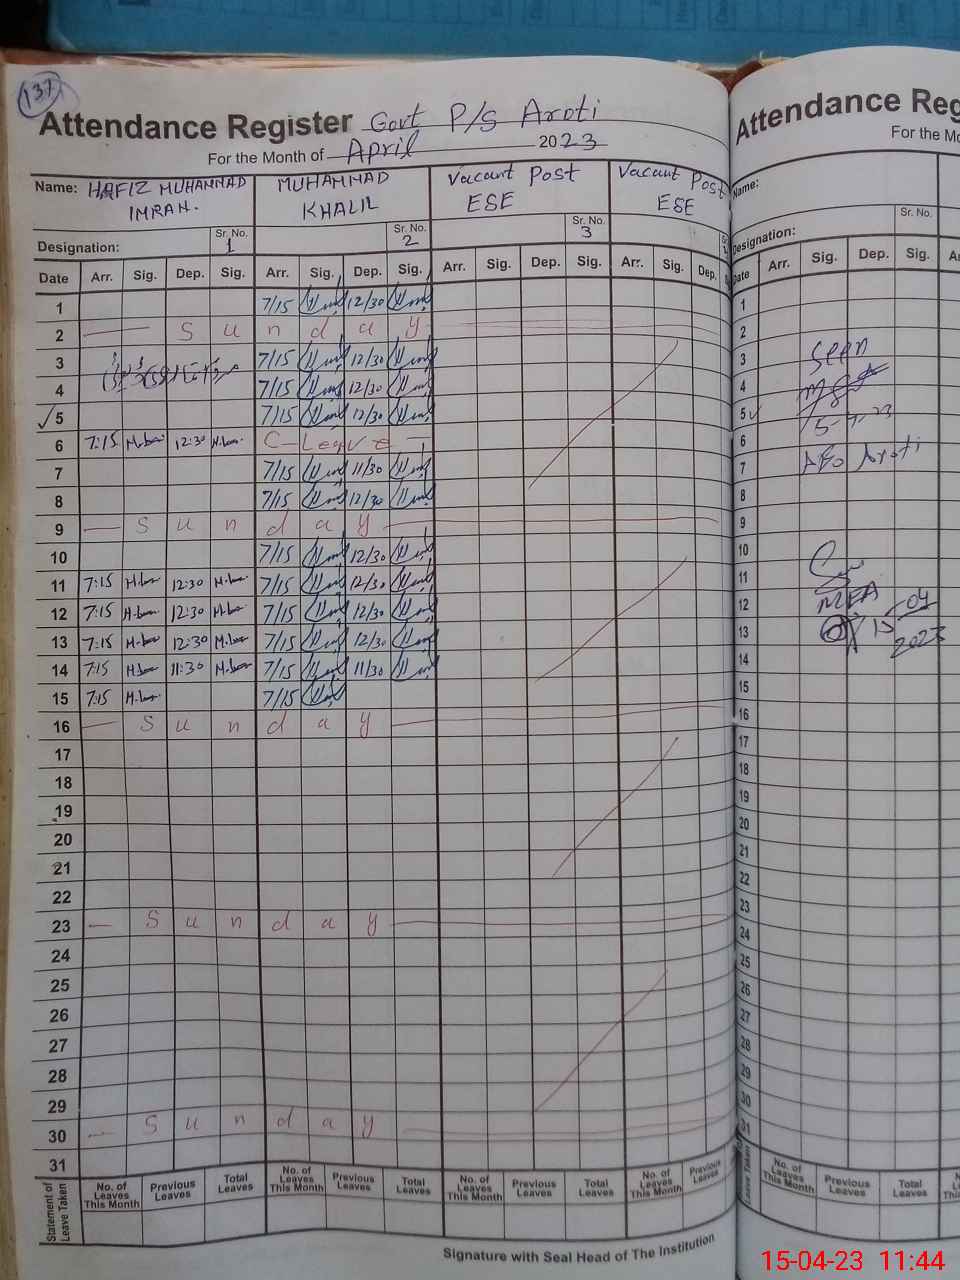 137
Attendance Register Govt P/S Aroti
For the Month of April 2023
Name: HAFIZ MUHAMMAD IMRAN. MUHAMMAD KHALIL Vacant Post ESE Vacant Post ESE
Designation: Sr. No. 1 Sr. No. 2 Sr. No. 3
Date Arr. Sig. Dep. Sig. Arr. Sig. Dep. Sig. Arr. Sig. Dep. Sig. Arr. Sig. Dep.
1 7/15 12/30
2 Sunday
3 7/15 12/30
4 7/15 12/30
5 7/15 12/30
6 7:15 12:30 C-Leave
7 7/15 11/30
8 7/15 12/30
9 Sunday
10 7/15 12/30
11 7:15 12:30 7/15 12/30
12 7:15 12:30 7/15 12/30
13 7:15 12:30 7/15 12/30
14 7:15 11:30 7/15 11/30
15 7:15 7/15
16 Sunday
17
18
19
20
21
22
23 Sunday
24
25
26
27
28
29
30 Sunday
31
Statement of Leave Taken
No. of Leaves This Month Previous Leaves Total Leaves No. of Leaves This Month Previous Leaves Total Leaves No. of Leaves This Month Previous Leaves Total Leaves No. of Leaves This Month Previous Leaves
Signature with Seal Head of The Institution
Attendance Reg
For the Mo
Name:
Sr. No.
Designation:
Date Arr. Sig. Dep. Sig.
1
2
3 Seen
4
5
6
7 AEO Aroti
8
9
10
11
12 MEA
13 15 04 2023
14
15
16
17
18
19
20
21
22
23
24
25
26
27
28
29
30
31
Leave Taken
No. of Leaves This Month Previous Leaves Total Leaves
15-04-23 11:44